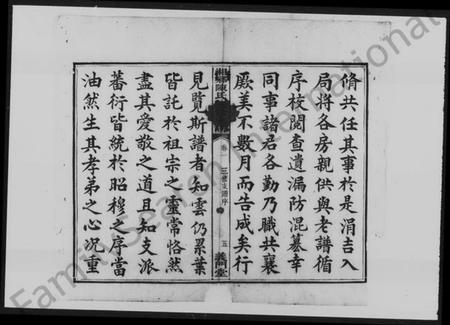 脩共任其事於是涓吉入
局將各房親供與老譜循
序校閱查遺漏防混纂幸
同事諸君各勤乃職共襄
厥美不數月而告成矣行
湘鄉陳氏
卷 三修支譜序 五 義門堂
見覽斯譜者知雲仍累葉
皆託於祖宗之靈常恪然
盡其愛敬之道且知支派
蕃衍皆統於昭穆之序當
油然生其孝弟之心況重
FamilySearch International